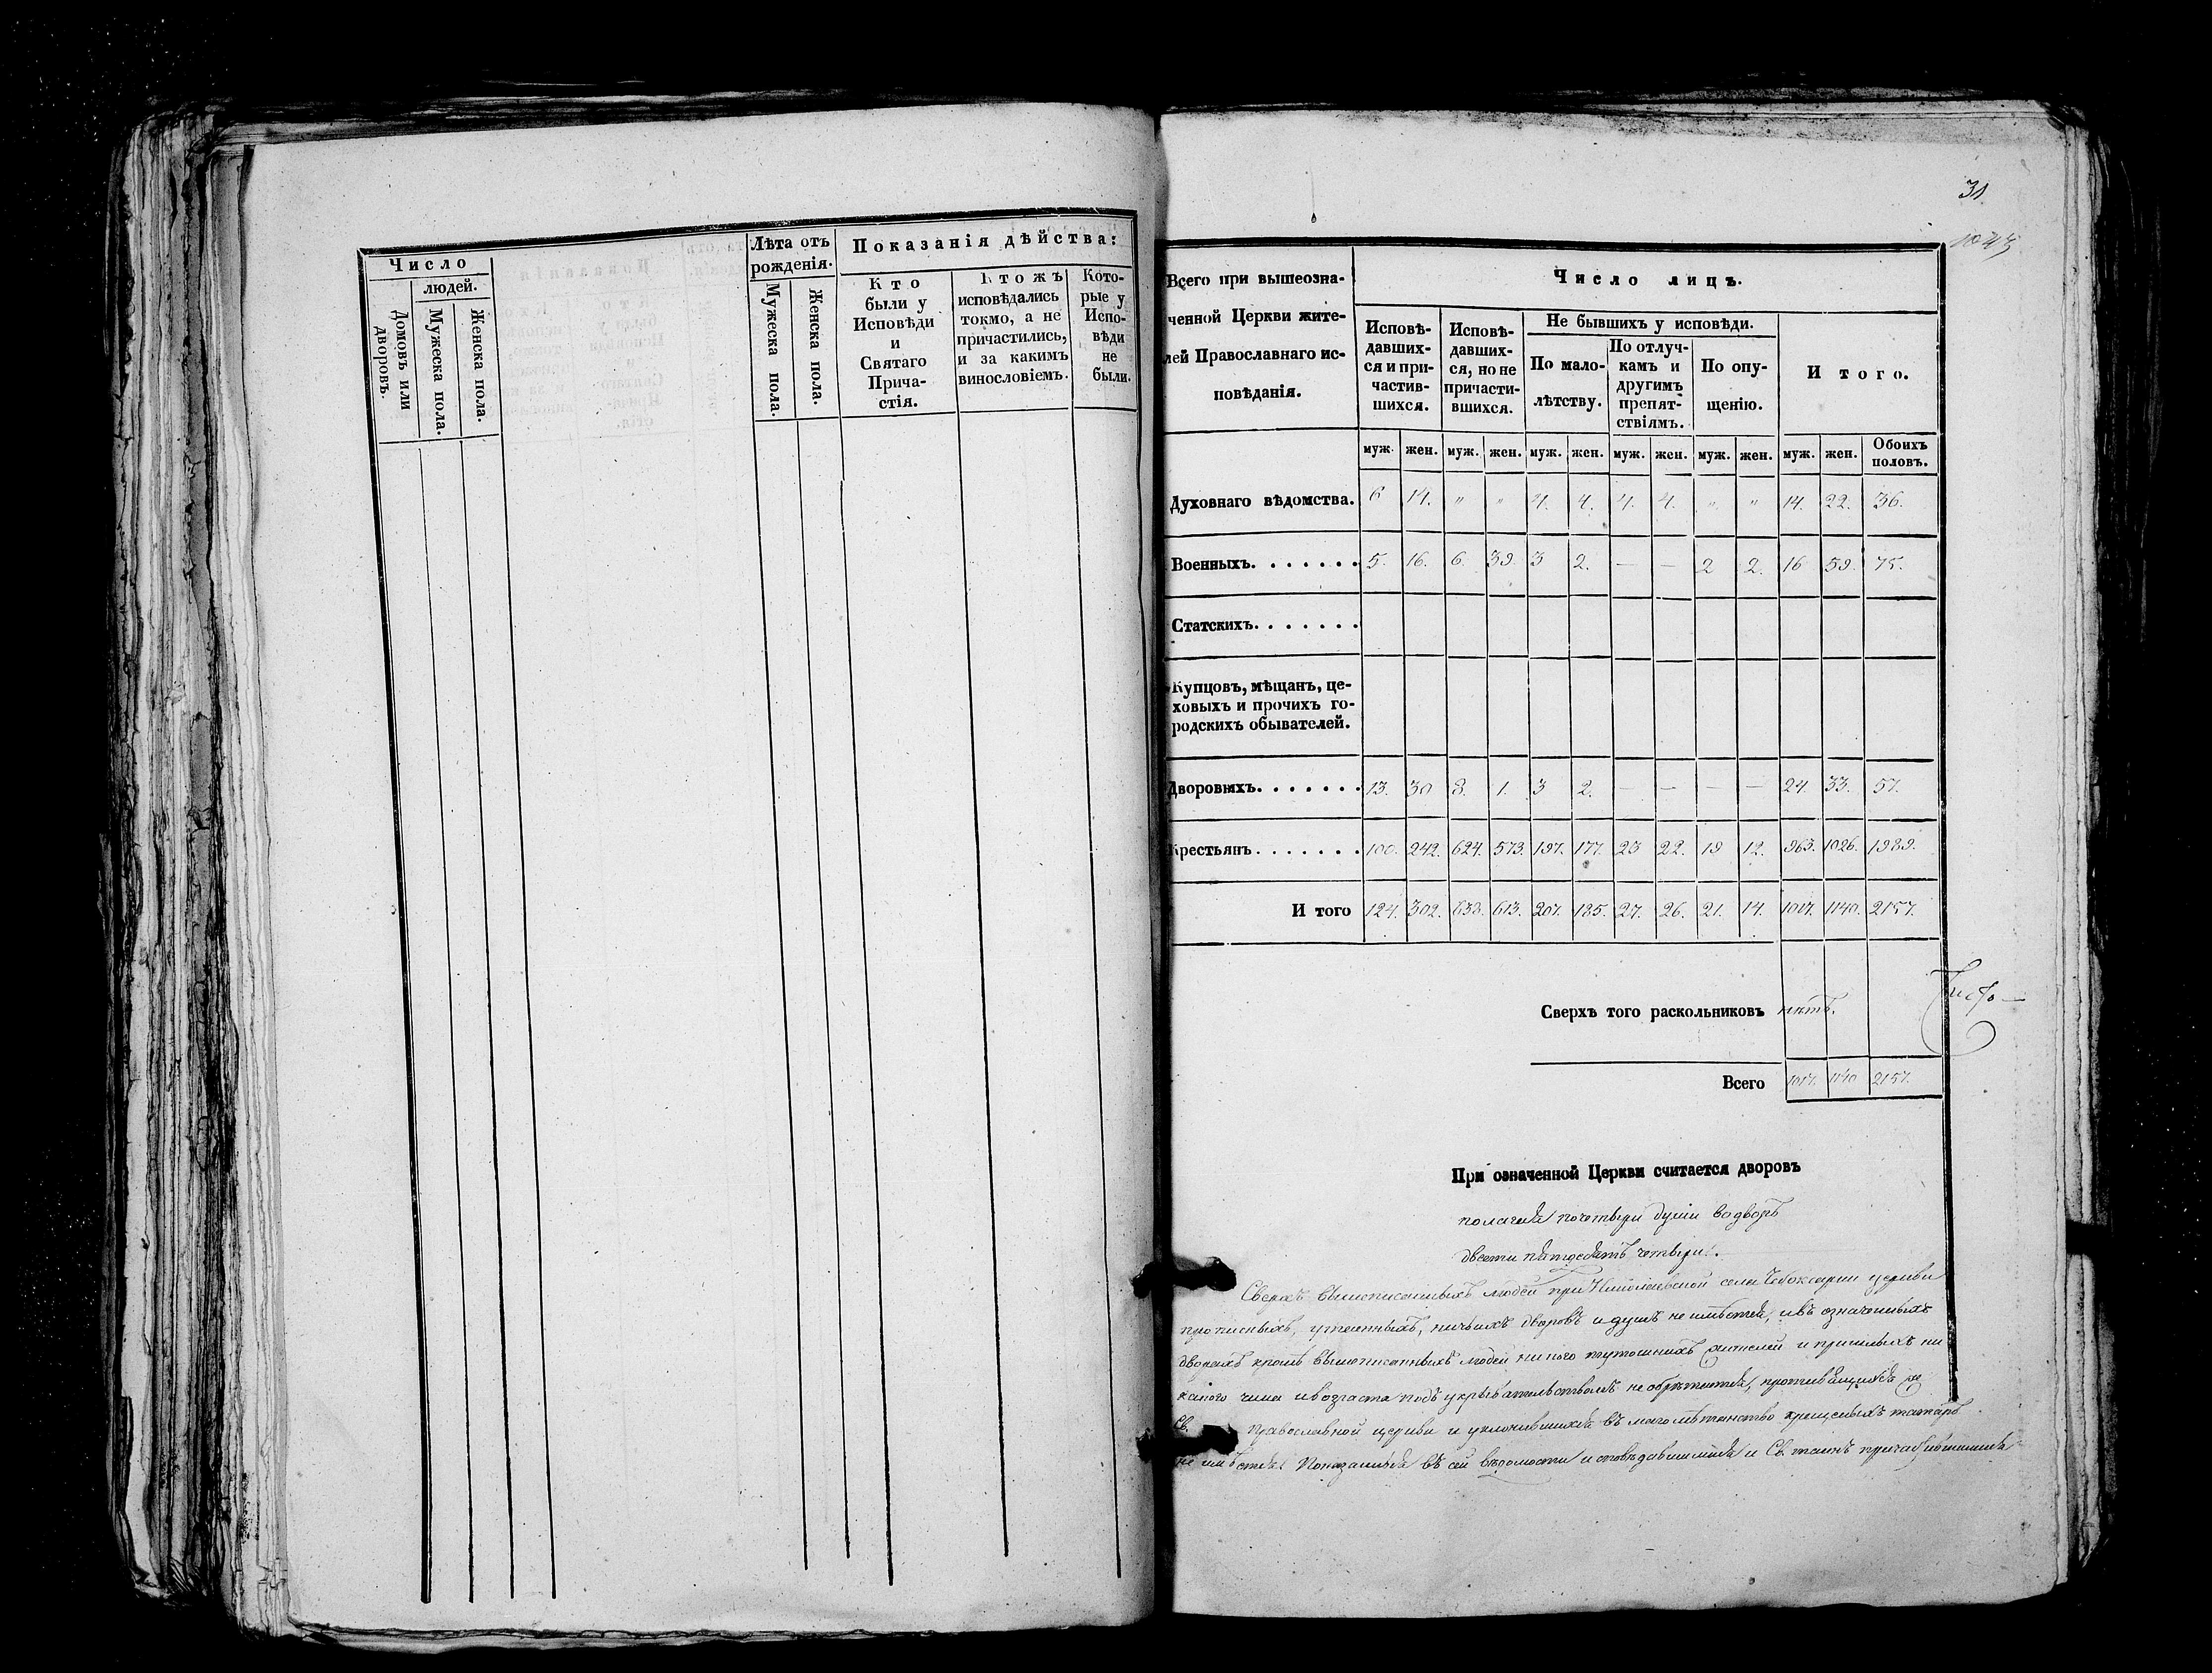 Число
людей.
Домовъ или дворовъ.
Мужеска пола.
Женска пола.
Лѣта отъ
рожденія.
Мужеска пола.
Женска пола.
Показанія дѣйства:
Кто
были у
Исповѣди
и
Святаго
Прича-
стія.
Ктожъ
исповѣдались
токмо, а не
причастились,
и за какимъ
винословіемъ.
Кото-
рые у
Испо-
вѣди
не
были.
31
Всего при вышеозна-
ченной Церкви жите-
лей Православнаго ис-
повѣданія.
Число лицъ.
Исповѣ-
давших-
ся и при-
частив-
шихся.
Исповѣ-
давших-
ся, но не
причасти-
вшихся.
Не бывшихъ у исповѣди.
По мало-
лѣтству.
По отлуч-
камъ и
другимъ
препят-
ствіямъ.
По опу-
щенію.
Итого.
муж. жен. муж. жен. муж. жен. муж. жен. муж. жен. муж. жен. Обоихъ половъ.
Духовнаго вѣдомства. 6 14. " " 4. 4. 4. 4. " " 14. 22. 36.
Военныхъ. . . . . . . 5. 16. 6. 39. 3 2. — — 2 2. 16 59. 75.
Статскихъ. . . . . . .
Купцовъ, мѣщанъ, це-
ховыхъ и прочихъ го-
родскихъ обывателей.
Дворовыхъ. . . . . . . 13. 30 8. 1. 3 2. — — — — 24. 33. 57.
Крестьянъ. . . . . . . 100. 242. 624. 573. 197. 177. 23 22. 19 12. 963. 1026. 1989.
И того 124. 302. 638. 613. 207. 185. 27. 26. 21. 14. 1017. 1140. 2157.
Сверхъ того раскольниковъ нѣтъ.
Всего 1017. 1140 2157.
При означенной Церкви считается дворовъ
полагая по четыри души во дворъ
двести пятдесятъ четыри.
Сверхъ вышеписанныхъ людей при Николаевской села Чебоксарки церкви
прописныхъ, утаенныхъ, ничьихъ дворовъ и душъ не имѣется, и въ означенныхъ
дворахъ кромѣ вышеписанныхъ людей никого тутошнихъ жителей и пришлыхъ ни
какого чина и возраста подъ укрывательствомъ не обрѣтается, противящихся же
Св. Православной церкви и уклонившихся въ магометанство крещеныхъ татаръ
не имѣется. Показанные въ сей вѣдомости исповѣдавшимися и Св. таинъ причастившимися